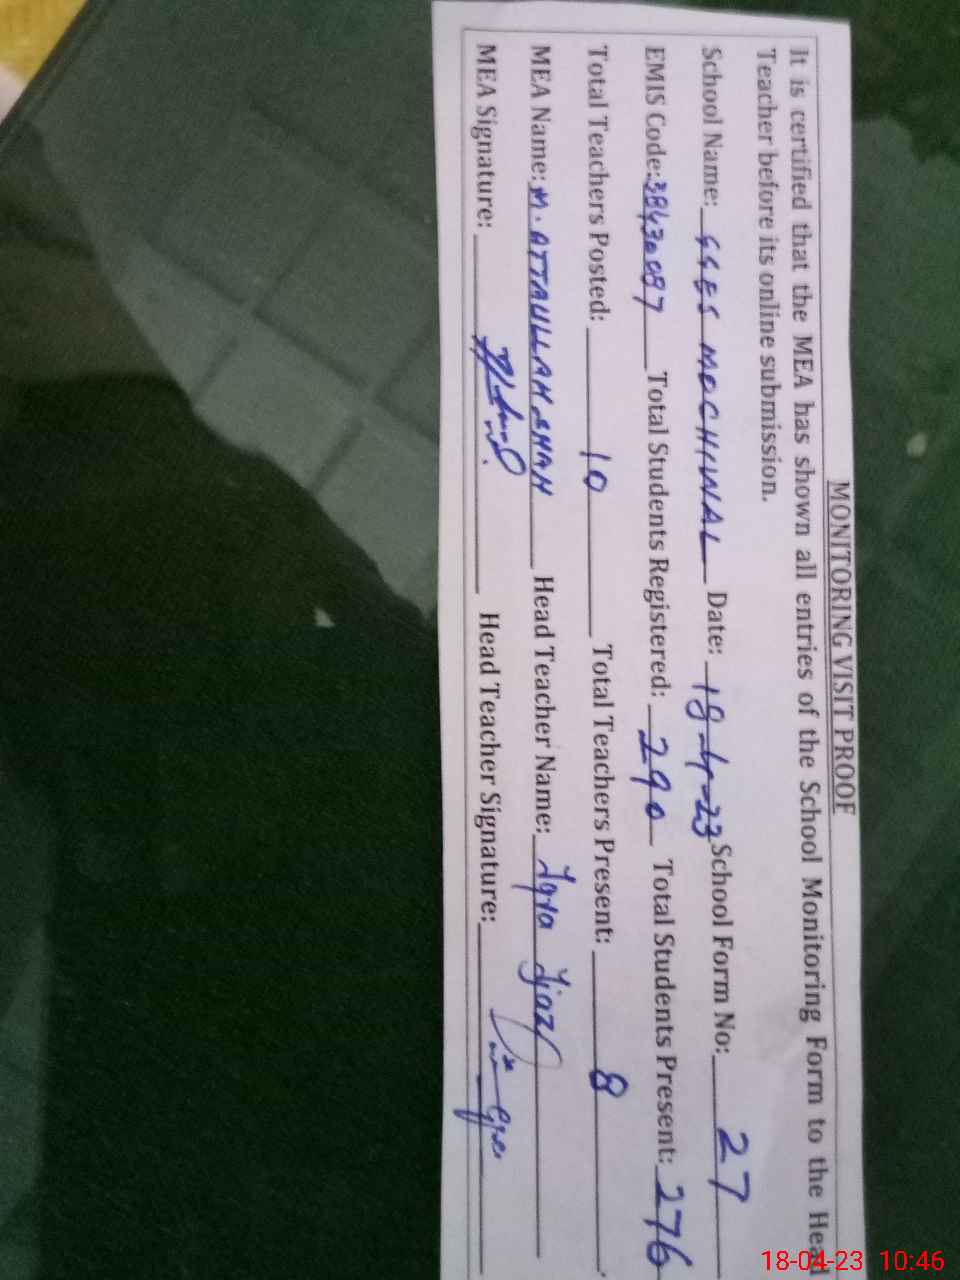 MONITORING VISIT PROOF
It is certified that the MEA has shown all entries of the School Monitoring Form to the Head
Teacher before its online submission.
School Name: GGES MOCHIWAL Date: 18-4-23 School Form No: 27
EMIS Code: 38430087 Total Students Registered: 290 Total Students Present: 276
Total Teachers Posted: 10 Total Teachers Present: 8
MEA Name: M. ATTAULLAH SHAH Head Teacher Name: Iqra Ijaz
MEA Signature: Head Teacher Signature:
18-04-23 10:46